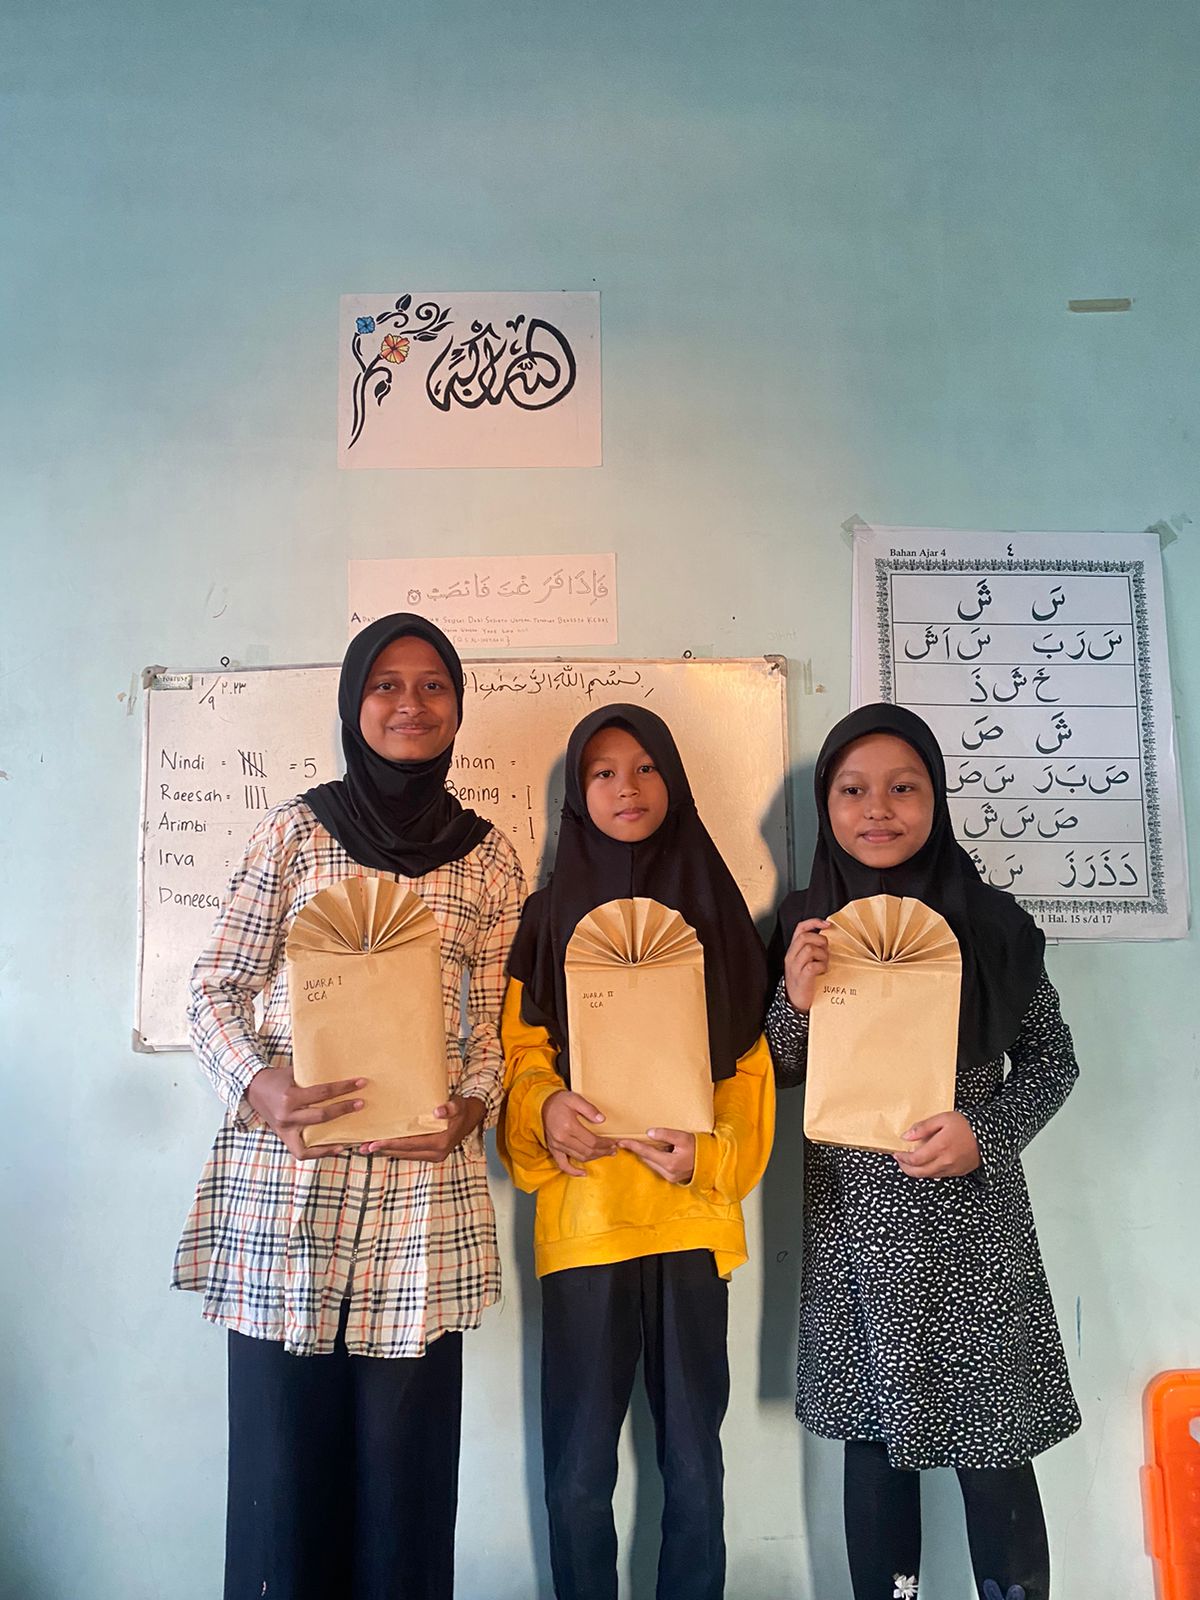 الله أكبر
فَإِذَا فَرَغْتَ فَانْصَبْ ٧
Selesai Dari Sesuatu Urusan
Urusan Yang Lain
FORTUNE
١/٩ ٢٠٢٣
بِسْمِ اللهِ الرَّحْمٰنِ
Nindi = = 5
Raeesah =
Arimbi =
Irva =
Daneesa
ihan =
Bening
Bahan Ajar 4
٤
سَ شَ
سَ رَ بَ سَ اَ شَ
خَ شَ ذَ
شَ صَ
صَ بَ رَ سَ صَ
صَ سَ شَ
دَ ذَ رَ زَ سَ شَ
1 Hal. 15 s/d 17
JUARA I
CCA
JUARA II
CCA
JUARA III
CCA